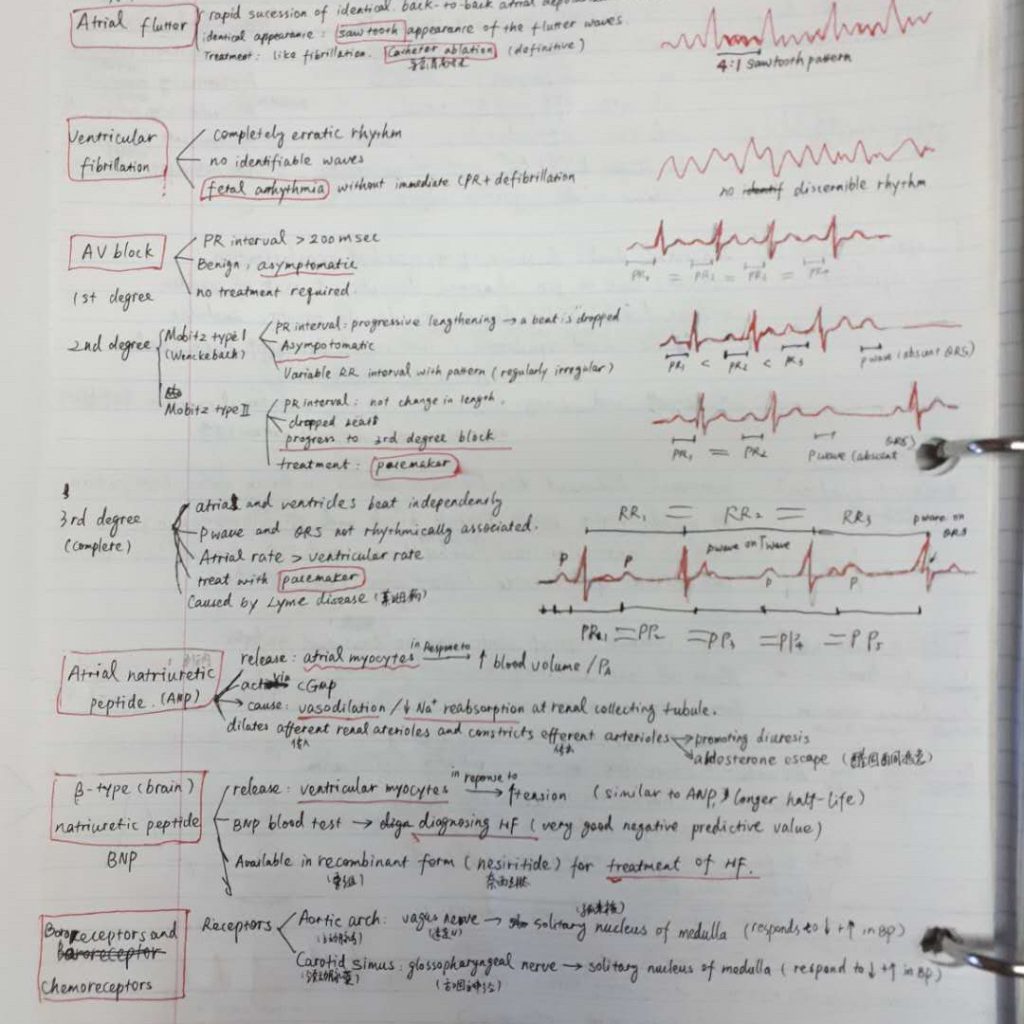 Atrial flutter
rapid sucession of identical. back-to-back atrial
identical appearance : sawtooth appearance of the flutter waves.
Treatment : like fibrillation. Catheter ablation (definitive)
4:1 sawtooth pattern
Ventricular fibrillation
completely erratic rhythm
no identifiable waves
fetal arrhythmia without immediate CPR + defibrillation
no discernible rhythm
AV block
1st degree
PR interval > 200 msec
Benign, asymptomatic
no treatment required
PR1 = PR2 = PR3 = PR4
2nd degree
Mobitz type I (Wenckeback)
PR interval : progressive lengthening → a beat is "dropped"
Asympotomatic
Variable RR interval with pattern (regularly irregular)
PR1 < PR2 < PR3 p wave (absent QRS)
Mobitz type II
PR interval : not change in length.
dropped beats
progress to 3rd degree block
treatment : pacemaker
PR1 = PR2 P wave (absent QRS)
3rd degree (complete)
atrial and ventricles beat independently
P wave and QRS not rhythmically associated.
Atrial rate > ventricular rate
treat with pacemaker
Caused by Lyme disease (莱姆病)
RR1 = RR2 = RR3 p wave on QRS
p wave on T wave
P P P P
PP1 = PP2 = PP3 = PP4 = PP5
Atrial natriuretic peptide. (ANP)
release : atrial myocytes in Respone to ↑ blood volume / PA
via cGmp
cause : vasodilation / ↓ Na+ reabsorption at renal collecting tubule.
dilates afferent renal arterioles and constricts efferent arterioles → promoting diuresis
传入
aldosterone escape (醛固酮逃逸)
β-type (brain) natriuretic peptide
BNP
release : ventricular myocytes in reponse to → ↑ tension (similar to ANP, longer half-life)
BNP blood test → diagnosing HF (very good negative predictive value)
Available in recombinant form (nesiritide) for treatment of HF.
(重组)
Baroreceptors and
Baroreceptor
Chemoreceptors
Receptors
Aortic arch : vagus nerve → solitary nucleus of medulla (responds to ↓ + ↑ in BP)
(主动脉弓) (迷走N) (孤束核)
Carotid simus : glossopharyngeal nerve → solitary nucleus of medulla (respond to ↓ + ↑ in BP)
(颈动脉窦) (舌咽神经)